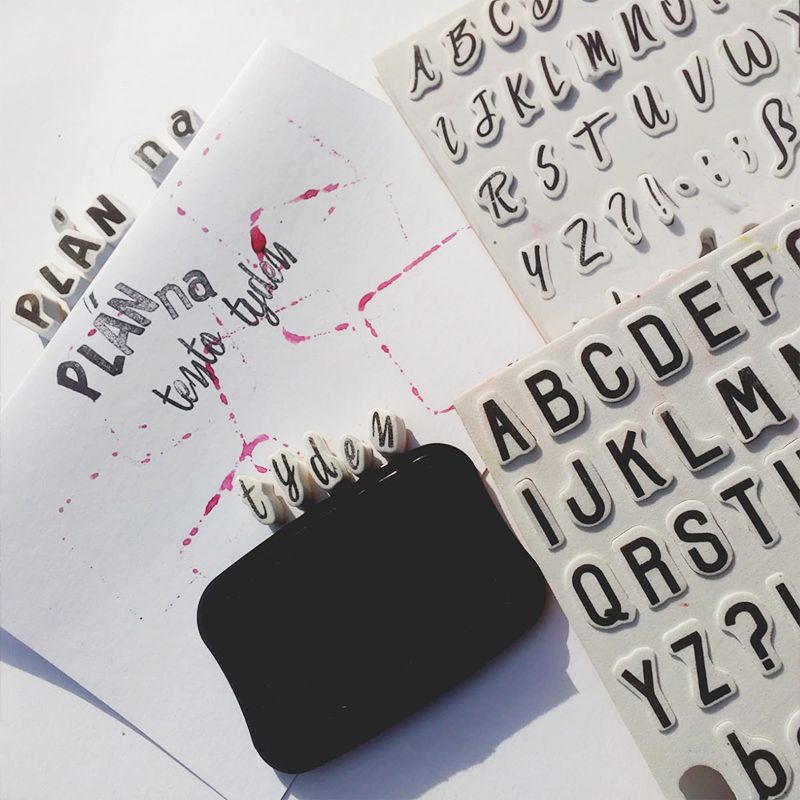 PLÁN na
PLÁN na
tento tyden
tyden
A B C D
I J K L M N O
R S T U V W
Y Z ? ! . : ; ß
A B C D E F
I J K L M
Q R S T
Y Z ?
b